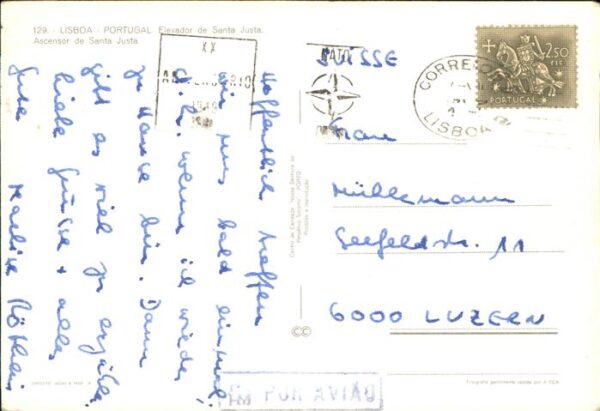 129. - LISBOA - PORTUGAL Elevador de Santa Justa.
Ascensor de Santa Justa.
XX
ANIVERSÁRIO
1949
NATO
CORREIOS
LISBOA
2$50
PORTUGAL
Hoffentlich treffen
wir uns bald einmal,
d.h. wenn ich wieder
zu Hause bin. Dann
gibt es viel zu erzählen.
Liebe Grüsse + alles
Gute
SUISSE
Frau
Müllemann
Seefeldstr. 11
6000 LUZERN
POR AVIÃO